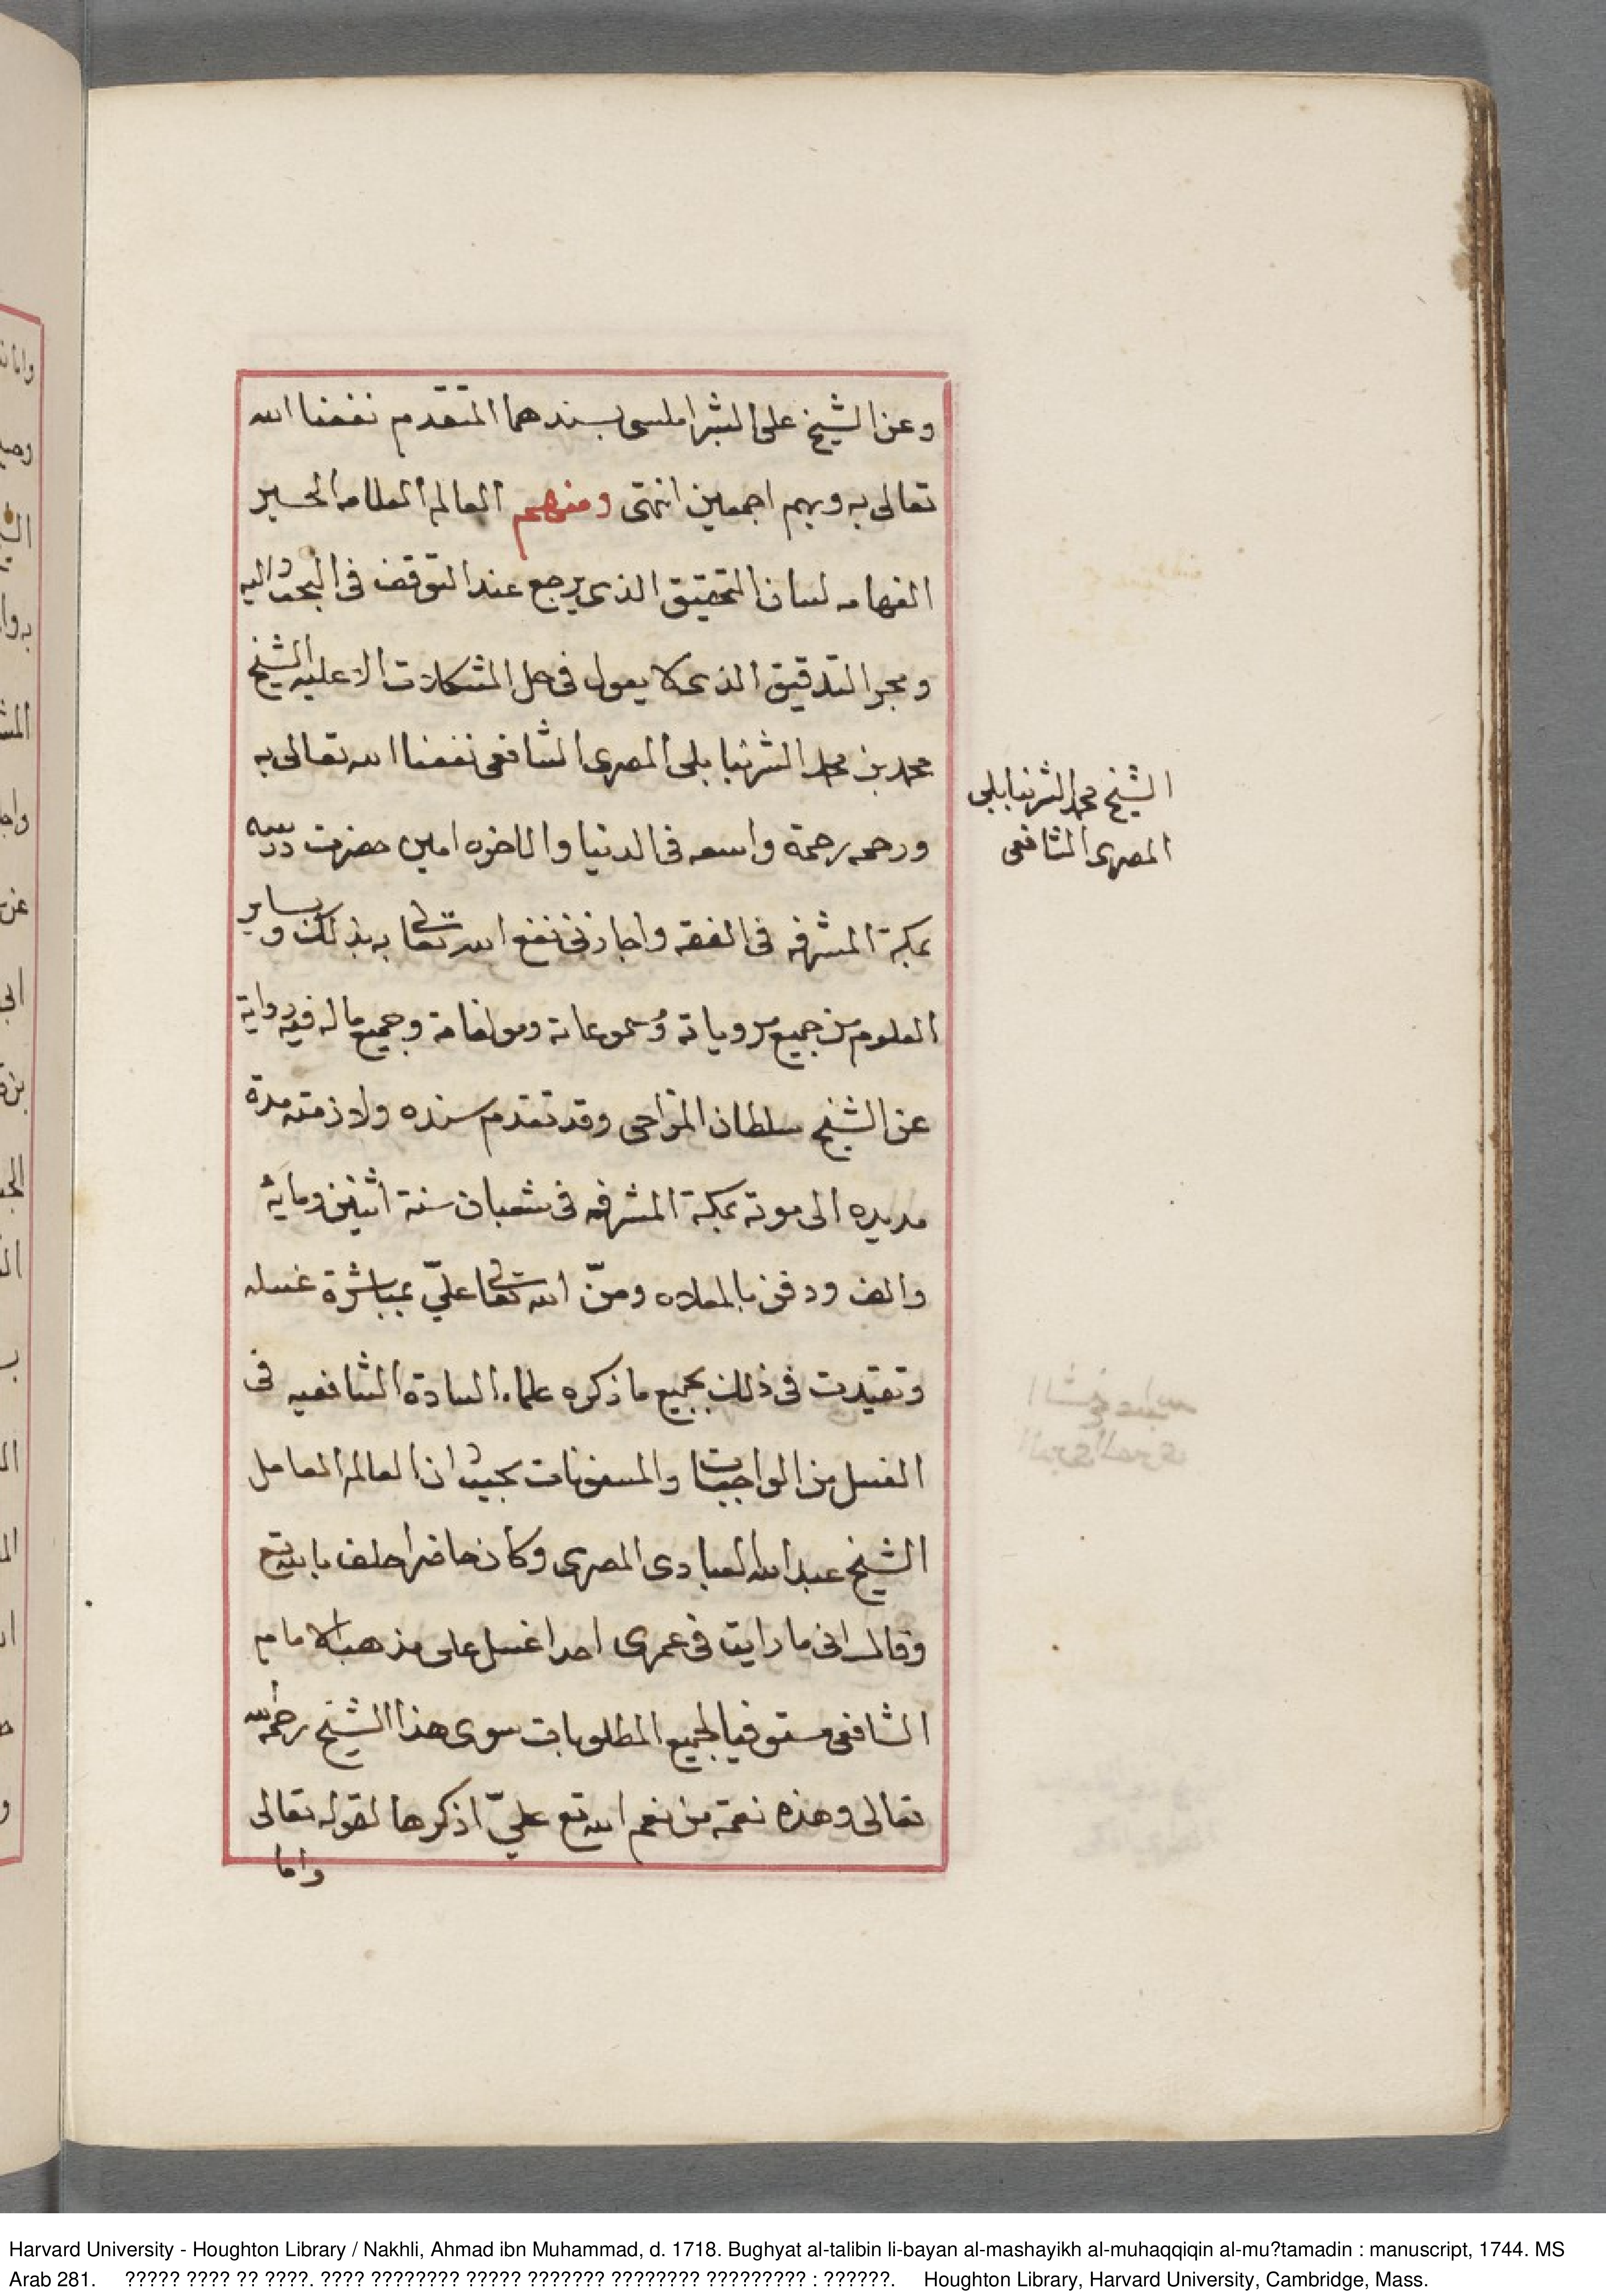 وعن الشيخ على الشبراملسى بسندهما المتقدم نفعنا الله
تعالى به وبهم اجمعين انتهى ومنهم العالم العلامه الحبر
الفهامه لسان التحقيق الذى يرجع عند التوقف فى البحث اليه
ومجر التدقيق الذى لا يعول فى حل المشكلات الا عليه الشيخ
محمد بن محمد الشرنبابلى المصرى الشافعى نفعنا الله تعالى به
ورحمه رحمة واسعه فى الدنيا والاخره امين حضرت درسه
بمكة المشرفه فى الفقه واجازنى نفع الله تعالى به بذلك وبساير
العلوم من جميع مروياته ومسموعاته ومولفاته وجميع ماله فيه رواية
عن الشيخ سلطان المزاحى وقد تقدم سنده ولازمته مدة
مديده الى موته بمكة المشرفه فى شعبان سنة اثنين وماية
والف ودفن بالمعلاه ومنّ الله تعالى علىّ بمباشرة غسله
وتقيدت فى ذلك بجميع ما ذكره علماء السادة الشافعيه فى
الغسل من الواجبات والمسنونات بحيث ان العالم العامل
الشيخ عبد الله العبادى المصرى وكان حاضرا حلف بالله تع
وقال انى ما رايت فى عمرى احدا غسل على مذهب الامام
الشافعى مستوفيا لجميع المطلوبات سوى هذا الشيخ رحمه الله
تعالى وهذه نعمة من نعم الله تع علىّ اذكرها لقوله تعالى
واما
الشيخ محمد الشرنبابلى
المصرى الشافعى
Harvard University - Houghton Library / Nakhli, Ahmad ibn Muhammad, d. 1718. Bughyat al-talibin li-bayan al-mashayikh al-muhaqqiqin al-mu?tamadin : manuscript, 1744. MS
Arab 281. ????? ???? ?? ????. ???? ???????? ????? ??????? ???????? ????????? : ??????. Houghton Library, Harvard University, Cambridge, Mass.